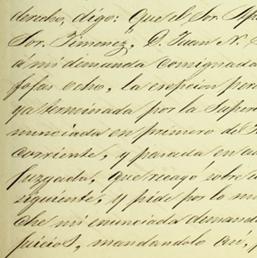 derecho, digo: Que el Sor. Ap
Sor. Jimenez, D. Juan N.
a mi demanda consignada
fojas ocho, la excepcion per
ya denominada por la Super
nunciada en primero del
corriente, y pasada en au
juzgada. Que recayo sobre
siguiente; y pide por lo m
che mi enunciada demand
juicios, mandandolo asi,